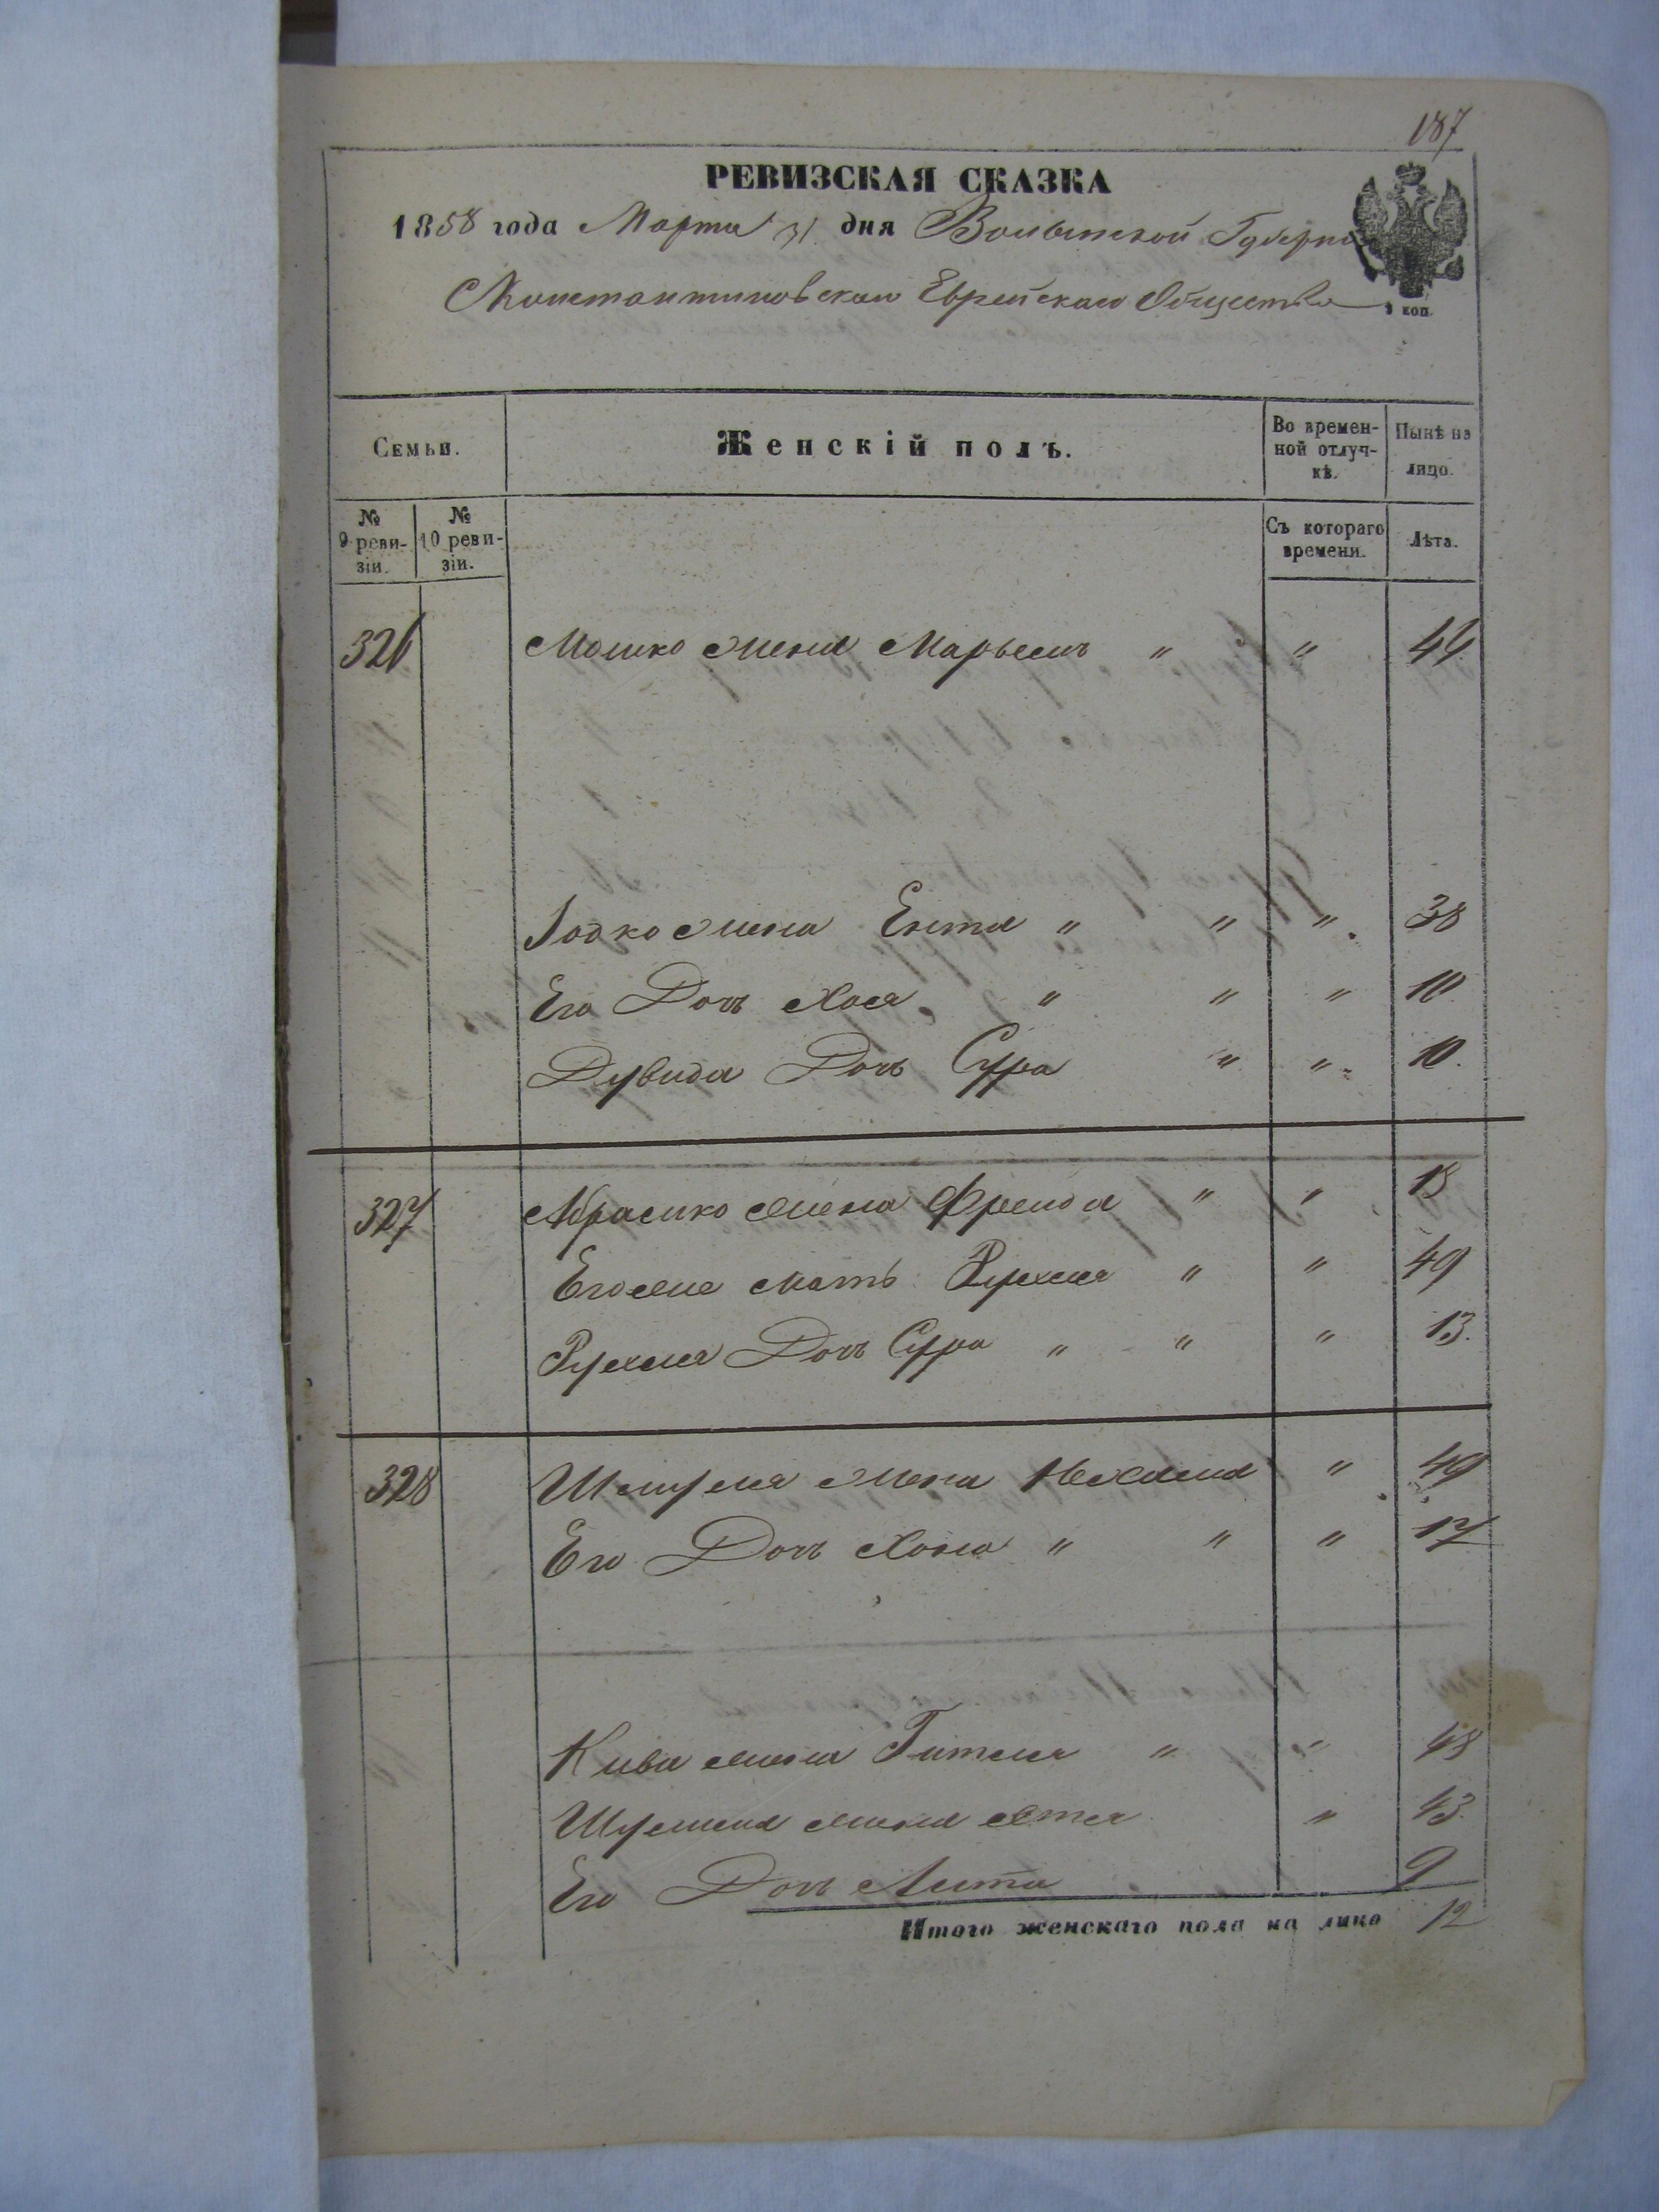 187
РЕВИЗСКАЯ СКАЗКА
1858 года Марта 31 дня Волынской Губерніи
Константиновскаго Еврейскаго Общества
3 коп.
Семьи. Женскій полъ. Во времен-ной отлуч-кѣ. Нынѣ на лицо.
№ 9 реви-зіи. № 10 реви-зіи. Съ котораго времени. Лѣта.
326 Мошко жена Марьемъ " " 44
Іодко жена Ента " " " 38
Его Дочь Хая " " " 10
Дувида Дочь Сура " " 10
327 Абрамко жена Фрейда " " 18
Егоже мать Рухля " " 49
Рухли Дочь Сура " " " 13
328 Шмуля жена Нехама " 49
Его Дочь Хона " " " 17
Кива жена Гитля " " 48
Шулима жена Этя " 43
Его Дочь 9
Итого женскаго пола на лицо 12